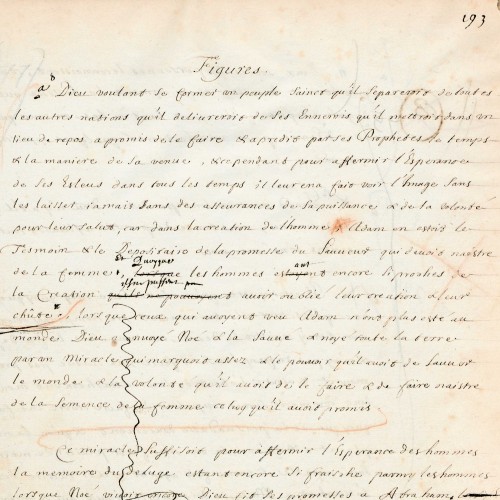 193
Figures.
Dieu voulant se former un peuple sainct qu'il separeroit de toutes
les autres nations qu'il delivreroit de ses Ennemis qu'il mettroit dans un
lieu de repos, a promis de le faire & a predit par ses Prophetes le temps
& la maniere de sa venue, & cependant pour affermir l'Esperance
de ses Esleus dans tous les temps il leur en a fait voir l'Image sans
les laisser jamais sans des assurances de sa puissance & de sa volonté
pour leur salut, car dans la creation de l'homme Adam en estoit le
Tesmoin & le Depositaire de la promesse du Sauveur qui devoit naistre
de la femme, les hommes estant encore si proches de
la Creation ne pouvoient avoir oublié leur creation & leur
chûte, lorsque ceux qui avoyent veu Adam n'ont plus esté au
monde Dieu envoyé Noé & la Sauvé & noyé toute la terre
par un Miracle qui marquoit assez & le pouvoir qu'il avoit de Sauver
le monde & la volonté qu'il avoit de le faire & de faire naistre
de la Semence de la femme celuy qu'il avoit promis
Ce miracle Suffisoit pour affermir l'Esperance des hommes
la memoire du deluge estant encore si fraische parmy les hommes
lorsque Noé vivoit encore Dieu fit des promesses a Abraham